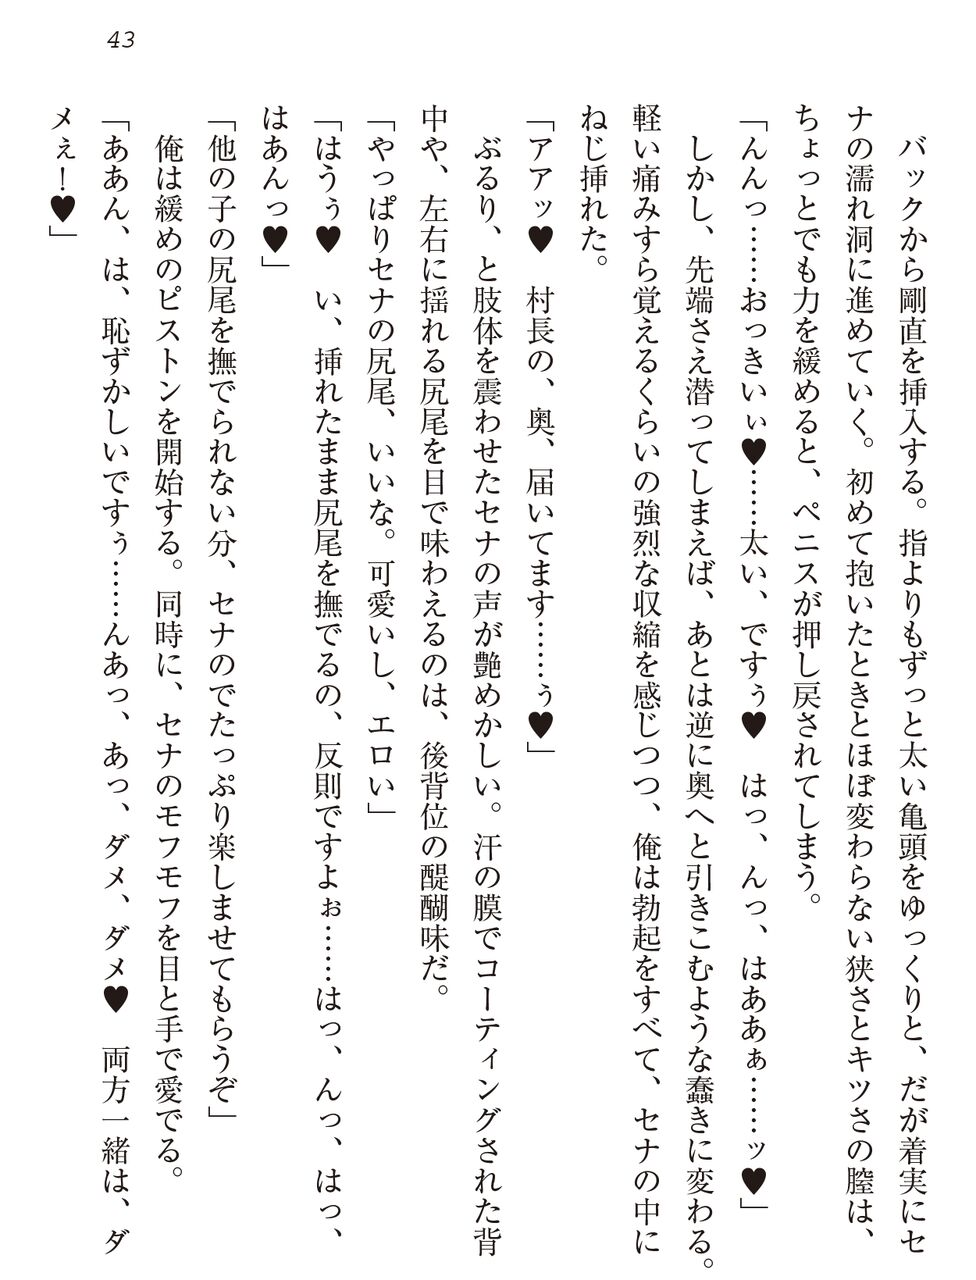 43
バックから剛直を挿入する。指よりもずっと太い亀頭をゆっくりと、だが着実にセ
ナの濡れ洞に進めていく。初めて抱いたときとほぼ変わらない狭さとキツさの膣は、
ちょっとでも力を緩めると、ペニスが押し戻されてしまう。
「んんっ……おっきいぃ♥……太い、ですぅ♥　はっ、んっ、はああぁ……ッ♥」
しかし、先端さえ潜ってしまえば、あとは逆に奥へと引きこむような蠢きに変わる。
軽い痛みすら覚えるくらいの強烈な収縮を感じつつ、俺は勃起をすべて、セナの中に
ねじ挿れた。
「アアッ♥　村長の、奥、届いてます……ぅ♥」
ぶるり、と肢体を震わせたセナの声が艶めかしい。汗の膜でコーティングされた背
中や、左右に揺れる尻尾を目で味わえるのは、後背位の醍醐味だ。
「やっぱりセナの尻尾、いいな。可愛いし、エロい」
「はうぅ♥　い、挿れたまま尻尾を撫でるの、反則ですよぉ……はっ、んっ、はっ、
はあんっ♥」
「他の子の尻尾を撫でられない分、セナのでたっぷり楽しませてもらうぞ」
俺は緩めのピストンを開始する。同時に、セナのモフモフを目と手で愛でる。
「ああん、は、恥ずかしいですぅ……んあっ、あっ、ダメ、ダメ♥　両方一緒は、ダ
メぇ！♥」